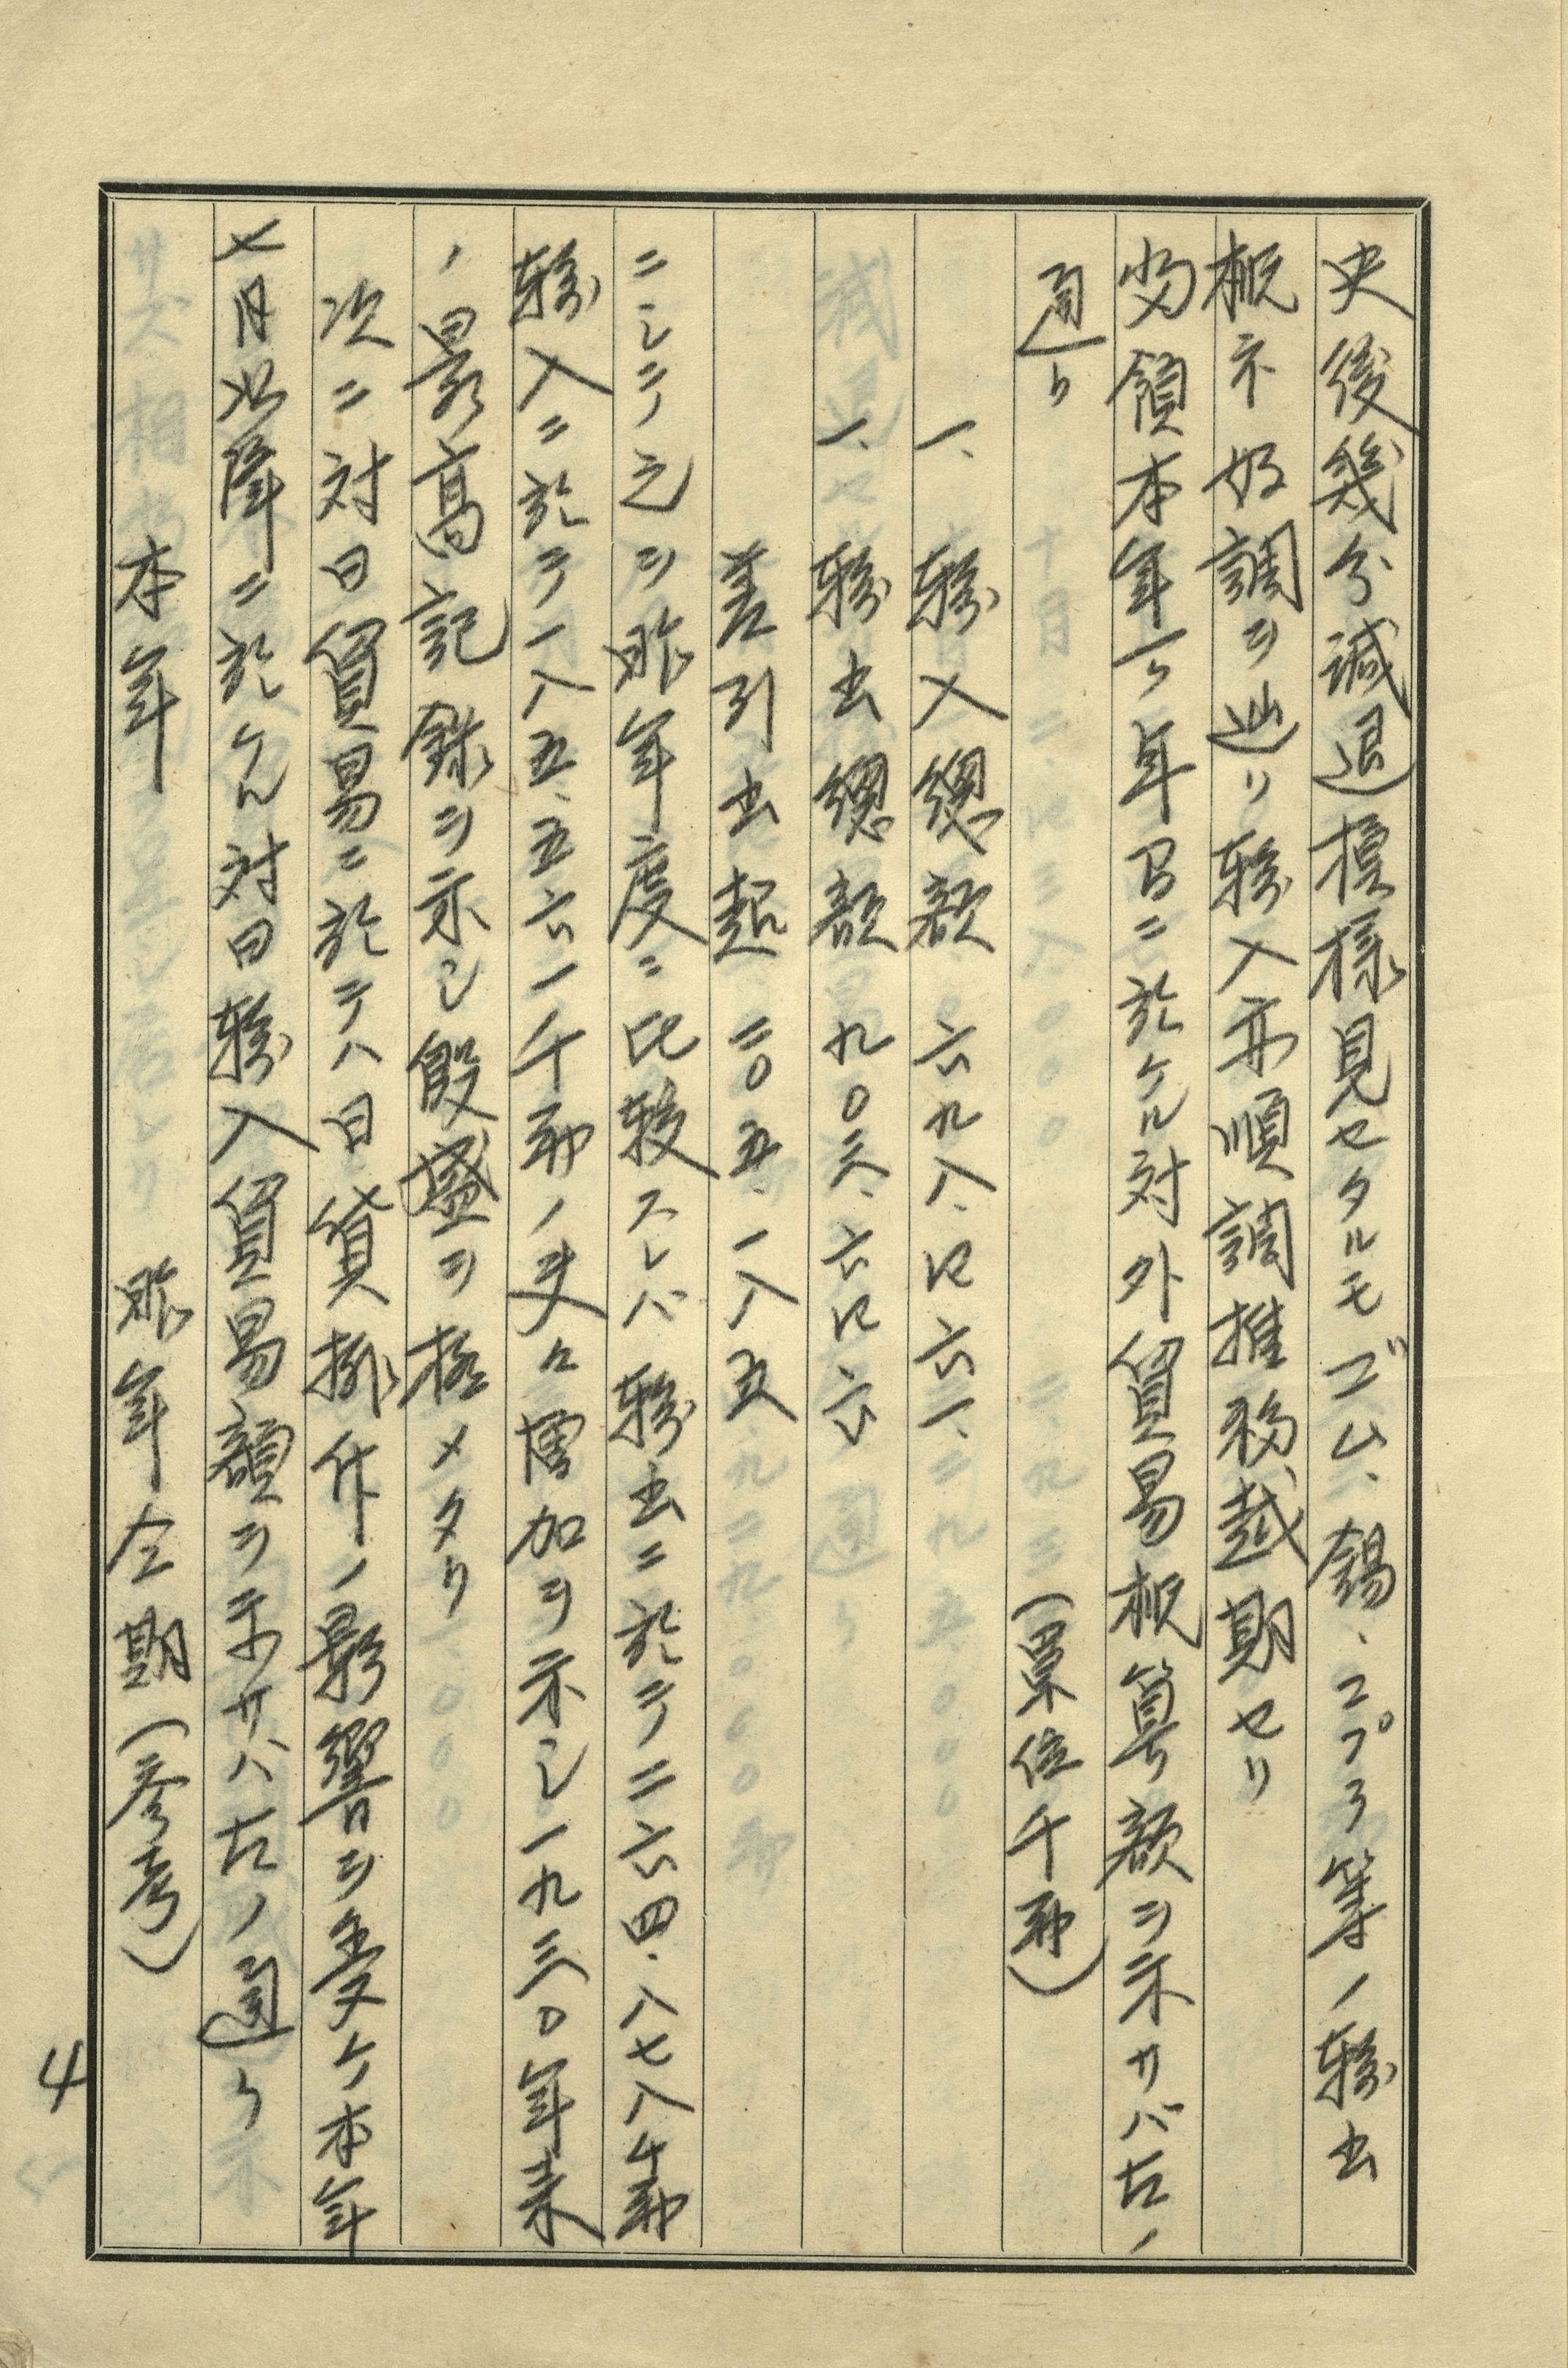 夫後幾分減退模様見セタルモゴム、錫、コプラ等ノ輸出
概ネ好調ヲ辿リ輸入亦順調推移越期セリ
当領本年一ケ年間ニ於ケル対外貿易概算額ヲ示サバ左ノ
通リ
(単位千弗)
一、輸入総額 六九八、四六一
一、輸出総額 九〇三、六四六
差引出超 二〇五、一八五
ニシテ之ヲ昨年度ニ比較スレバ輸出ニ於テ二六四、八七八千弗
輸入ニ於テ一八五、五六一千弗ノ夫々増加ヲ示シ一九三〇年来
ノ最高記録ヲ示シ殷盛ヲ極メタリ
次ニ対日貿易ニ於テハ日貨排斥ノ影響ヲ受ケ本年
七月以降ニ於ケル対日輸入貿易額ヲ示サバ左ノ通リ
本年 昨年仝期(参考)
4